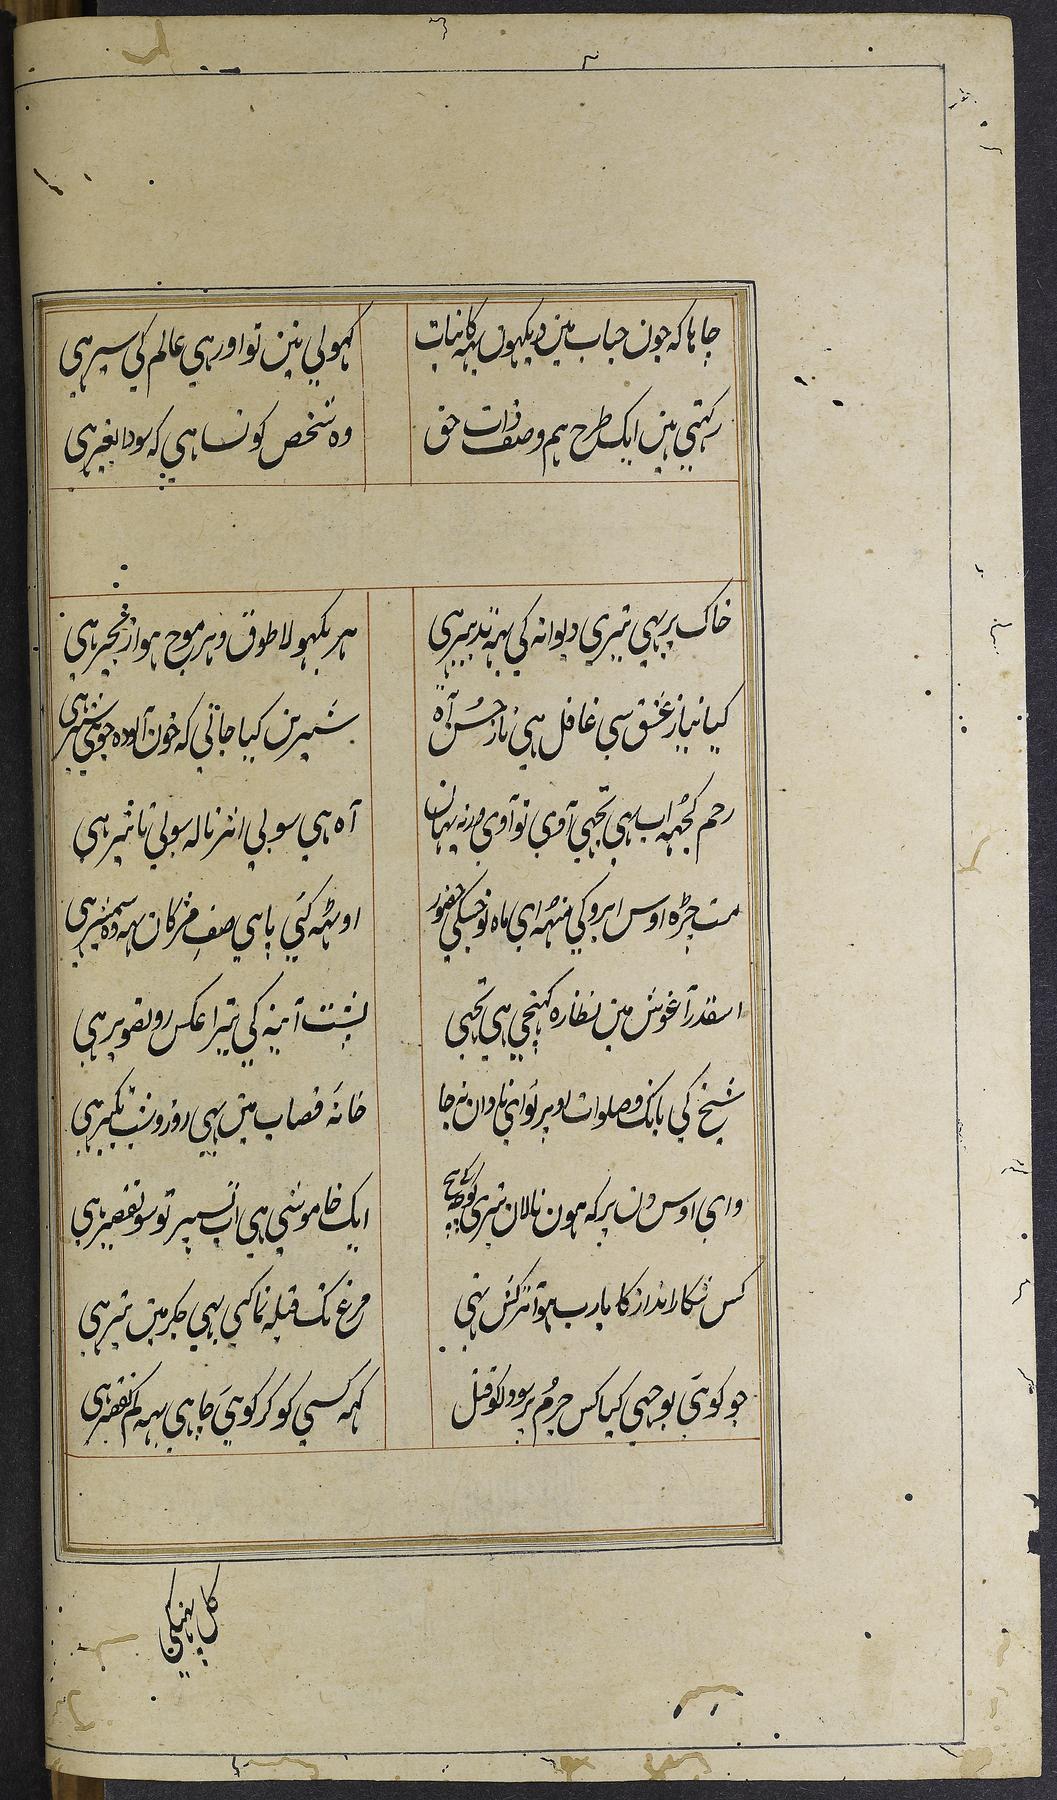 چاہا کہ جون حباب مین دیکھون یہہ کاینات کھولی نین تو اور ہی عالم کی سیر ہی
کہتی ہین ایک طرح ہم وصف ذات حق وہ شخص کونسا ہی کہ سودا بغیر ہی
خاک پر بہی تیری دیوانہ کی یہہ تدبیر ہی ہر بگہولا طوق و ہر موج ہوا زنجیر ہی
کیا نیاز عشق سی غافل ہی ناز حسن آہ شیرین کیا جانی کہ خون آلودہ جوی شیر ہی
رحم کچہہ اب ہی تجہی آوی تو آوی ورنہ یہان آہ ہی سو بی اثر نالہ سو بی تاثیر ہی
مت چڑہ اوس ابرو کی منہہ ای ماہ نو جسکی حضور اوٹہہ گئی پا ہی صف مژگان یہہ وہ شمشیر ہی
اسقدر آغوش مین نظارہ کہنچی ہی تجہی پشت آینہ کی تیرا عکس رو تصویر ہی
شیخ کی بانک و صلوات اوپر تو ای نادان نہ جا خانہ قصاب مین بہی روز و شب تکبیر ہی
وای اوس دن پر کہ ہون نالان تیری کوچہ ایک خاموشی ہی اب تسپر تو سو تقصیر ہی
کس شکار انداز کا یارب ہوا ترکش تہی مرغ تک قبلہ نما کی بہی جگر مین تیر ہی
جو کوئی پوچہی کیا کس جرم پر سودا کو قتل کہہ کسی کو گر کوئی چاہی یہہ کم تقصیر ہی
کل پہنیکی